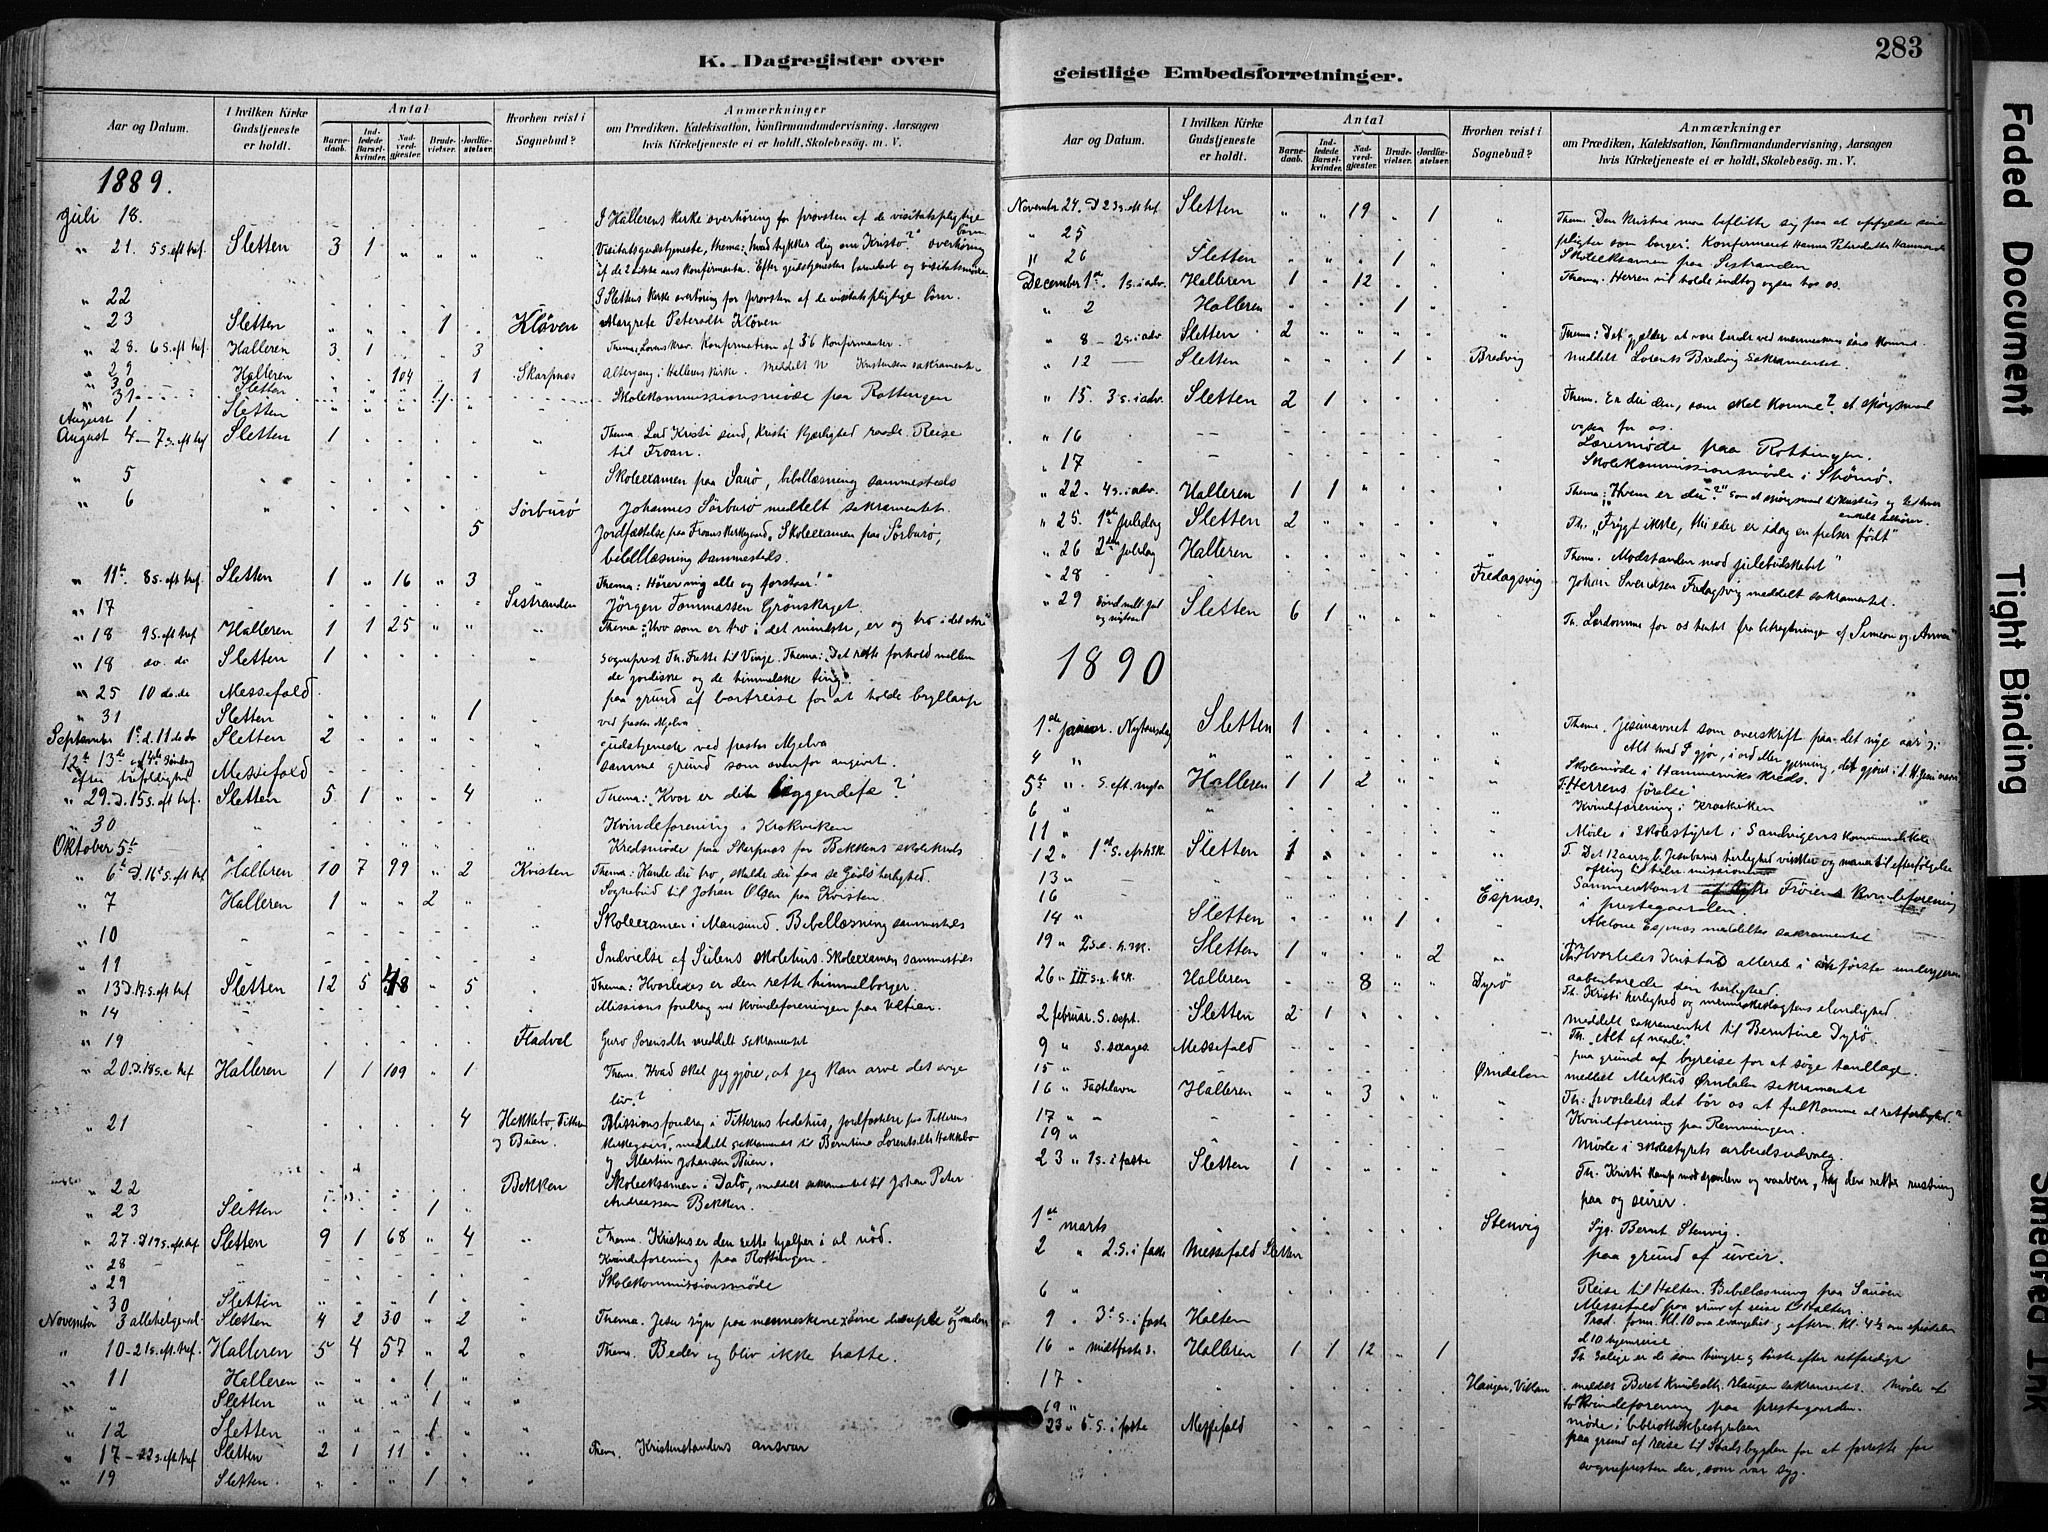 K. Dagregister over
Aar og Datum.
I hvilken Kirke Gudstjeneste er holdt.
Antal
Barnedaab.
Indledede Barselkvinder.
Nadvergjæster.
Brudevielser.
Jordfæstelser.
Hvorhen reist i Sognebud?
Anmærkninger
om Prædiken, Katekisation, Konfirmandundervisning, Aarsagen
hvis Kirketjeneste ei er holdt, Skolebesøg. m. V.
1889.
Juli 18. I Hallerens kirke overhøring for provsten af de visitatspligtige børn
" 21. 5 s. eft tref. Sletten 3 1 " " " Visitatsgudstjeneste, thema: hvad tykker dig om Kristo? overhøring
" 22 I Slettens kirke overhøring for provsten af de visitatspligtige børn.
" 23 Sletten 1 Kløven Margrete Petersdtr Kløven
" 28. 6 s. eft tref. Halleren 3 1 3 Konfirmation af 36 Konfirmanter.
" 29 Halleren 104 1 Skarpnæs Altergang i Hallerens kirke. Meddelt Kristensen sakramentet
" 30 Sletten
" 31 Skolekommissionsmøde paa Rottingen
August 1. Sletten
August 4 – 7 s. eft tref Sletten 1 Thema. Lad Kristi sind, Kristi kjærlighed raade. Reise
til Froan.
" 5 Skoleexamen paa Sauø, bibellæsning sammesteds
" 6 Sørburø Johannes Sørburø meddelt sakramentet.
5 Jordfæstelse paa Froans Kirkegaard. Skoleexamen paa Sørburø,
bibellæsning sammesteds.
" 11te 8 s. eft tref. Sletten 1 " 16 " 3 Thema: Hører mig alle og forstaar!
" 17 Sistranden Jørgen Tommassen Grønskaget.
" 18 9 s. eft tref Halleren 1 1 25 " " Thema: Hvo som er tro i det mindste, er og tro i det store
" 18 do. do Sletten 1 Sogneprest Th. Fætte til Vinje. Thema: Det rette forhold mellem
de jordiske og de himmelske ting.
" 25 10 do. do Messefald. paa grund af bortreise for at holde bryllup
" 31 Sletten 1 ved pastor Mjelva
September 1ste d. 11 do do Sletten 2 gudstjeneste ved pastor Mjelva
12te 13te og 14te Søndag
efter trefoldighed Messefald samme grund som ovenfor angivet.
" 29. D. 15 s. eft tref. Sletten 5 1 " " 4 Thema: Hvor er dit liggendefæ?
" 30 Kvindeforening i Krokviken
Oktober 5te Kredsmøde paa Skarpnæs for Bekkens skolekreds
" 6te D. 16 s. eft tref Halleren 10 7 99 " 2 Kvisten Thema: Kunde du tro, skulde du faa se Guds herlighed.
Sognebud til Johan Olsen paa Kvisten.
" 7 Halleren 1 " " 2
" 10 Skoleexamen i Mausund. Bibellæsning sammesteds
" 11 Indvielse af Sulens skolehus. Skoleexamen sammesteds
" 13 D. 17 s. eft tref Sletten 12 5 48 5 Thema: Hvorledes er den rette himmelborger.
" 14 Missions foredrag ved kvindeforeningen paa Uttian.
" 19 Fladval Guro Sørensdtr meddelt sakramentet
" 20. D. 18 s. e tref Halleren 1 1 109 " 1 Thema. Hvad skal jeg gjøre, at jeg kan arve det evige
liv?
" 21 4 Hakkebo, Titten og Buen. Missionsforedrag i Titterens bedehus, jordfæstelse paa Titterens
kirkegaard, meddelt sakramentet til Berntine Lorentsdtr Hakkebo
og Martin Johansen Buen.
" 22 Bekken Skoleeksamen i Dalø, meddelt sakramentet til Johan Peter
" 23 Sletten 1 Andreassen Bekken.
" 27. D. 19 s. eft. tref. Sletten 9 1 68 " 4 Thema. Kristus er den rette hjelper i al nød.
" 28 Kvindeforening paa Rottingen.
" 29 Skolekommissionsmøde
" 30 Sletten 1
November 3 allehelgensd. Sletten 4 2 30 " 2
" 10 – 21 s. eft. tref. Halleren 5 4 57 " 2 Thema. Beder og bliv ikke trætte.
" 11 Halleren 1
" " Sletten 1
" 12 Sletten 1
" 17 – 22 s. eft tref Sletten 2 1 11 Thema. Kristenstandens ansvar
" 19 Sletten 1
geistlige Embedsforretninger.
283
Aar og Datum.
I hvilken Kirke Gudstjeneste er holdt.
Antal
Barnedaab.
Indledede Barselkvinder.
Nadvergjæster.
Brudevielser.
Jordfæstelser.
Hvorhen reist i Sognebud?
Anmærkninger
om Prædiken, Katekisation, Konfirmandundervisning, Aarsagen
hvis Kirketjeneste ei er holdt, Skolebesøg. m. V.
November 24. D 23 s. eft tref. Sletten " " 19 " 1 Thema. Den kristne maa beflitte sig paa at opfylde sine
" 25 pligter som borger. Konfirmeret Hanna Petersdatter
" 26 Sletten 1 Skoleeksamen paa Sistranden
December 1ste. 1 s. i adv. Halleren 1 " 12 Thema. Herren vil holde indtog ogsaa hos os.
" 2 Halleren 1
" 8 – 2 s. i adv Sletten 2 Thema: Det gjælder at være beredt ved menneskens søns komme.
" 12 Sletten 1 Bredvig meddelt Lorents Bredvig Sakramentet.
" 15. 3 s. i adv. Sletten 2 1 Thema. Er du den, som skal komme? et spørgsmaal
ogsaa for os.
" 16 Lærermøde paa Rottingen.
" 17 Skolekommissionsmøde i Strømø.
" 22. 4 s. i adv. Halleren 1 1 Thema: "Hvem er du?"
" 25. 1ste juledag Sletten 2 Th. "Frygt ikke, thi eder er idag en frelser født"
" 26 2den juledag Halleren Thema. Modstanden mod julebudskabet"
" 28 Fredagsvig Johan Svendsen Fredagsvig meddelt sakramentet.
" 29 Sønd. mell. jul og nytaar Sletten 6 1 Th. Lærdomme for os hentet fra betragtningen af Simeon og Anna"
1890
1ste januar. Nytaarsdag Sletten 1 Thema. Jesunavnet som overskrift paa det nye aar:
Alt hvad I gjør, i ord eller gjerning, det gjører i d. H. Jesu navn
4 " Skolemøde i Hammerviks kreds.
5te " S. eft. nytaar Halleren 1 1 2 T: Herrens fødelse"
6 Kvindeforening i Kraakviken
11 " Møde i Skolestyret i Sandvigens kommunelokale
12 " 1ste S. eft h.3K. Sletten 1 T. Det 12 aarige Jesubarns herlighed
13 " ofring til hedn. missionen
16 Espnæs. Sammenkomst Frøiens kvindeforening
i prestegaarden.
14 " Sletten 1 Abelone Espnæs meddeltes sakramentet
19 " 2 s. e. h. 3K. Sletten 1 2
26 " III s. e. h. 3K. Halleren 8 Dyrø aabenbarede sin herlighed
Th. Kristi herlighed og menneskeslægtens elendighed.
2 februar. S. sept. Sletten 2 1 meddelt sakramentet til Berntine Dyrø.
Th. "Alt af naade."
9 " S. sexages. Messefald paa grund af byreise for at søge tandlæge.
15 " Ørndalen meddelt Markus Ørndalen sakramentet
16 " Fastelavn Halleren 3 Th: hvorledes det bør os at fuldkomme al retfærdighed."
17 " Kvindeforening paa Remmingen.
19 " Møde i skolestyrets arbeidsudvalg.
23 " 1 s. i faste Sletten 1 Th. Kristi kamp mod fienden og vaaben, tag den rette rustning
paa og seirer.
1ste marts Stenvig Syg. Bernt Stenvig.
2 " 2. s. i faste Messefald Sletten paa grund af uveir.
6 " Reise til Halten. Bibellæsning paa Sauøen
Messefald paa grund af reise til Halten.
9 " 3die S. i faste Halten Præd. form. Kl. 10 ova evangeliet og efterm. Kl. 4½ ova epistelen
d 10 hjemreise
16 " midtfaste s. Halleren 1 1 12 " 1 Th Salige er de som hungre og tørste efter retfærdighed
17 " Haugen, Vikan meddelt Beret Knudsdtr. Haugen sakramentet. Møde
19 " Kvindeforening paa prestegaarden.
møde i bibliothekbestyrelsen
23 " 5. S. i faste Messefald paa grund af reise til Stadsbygden for at forrette for
sognepresten der, som var syg.
Faded Document
Tight Binding
Smeared Ink